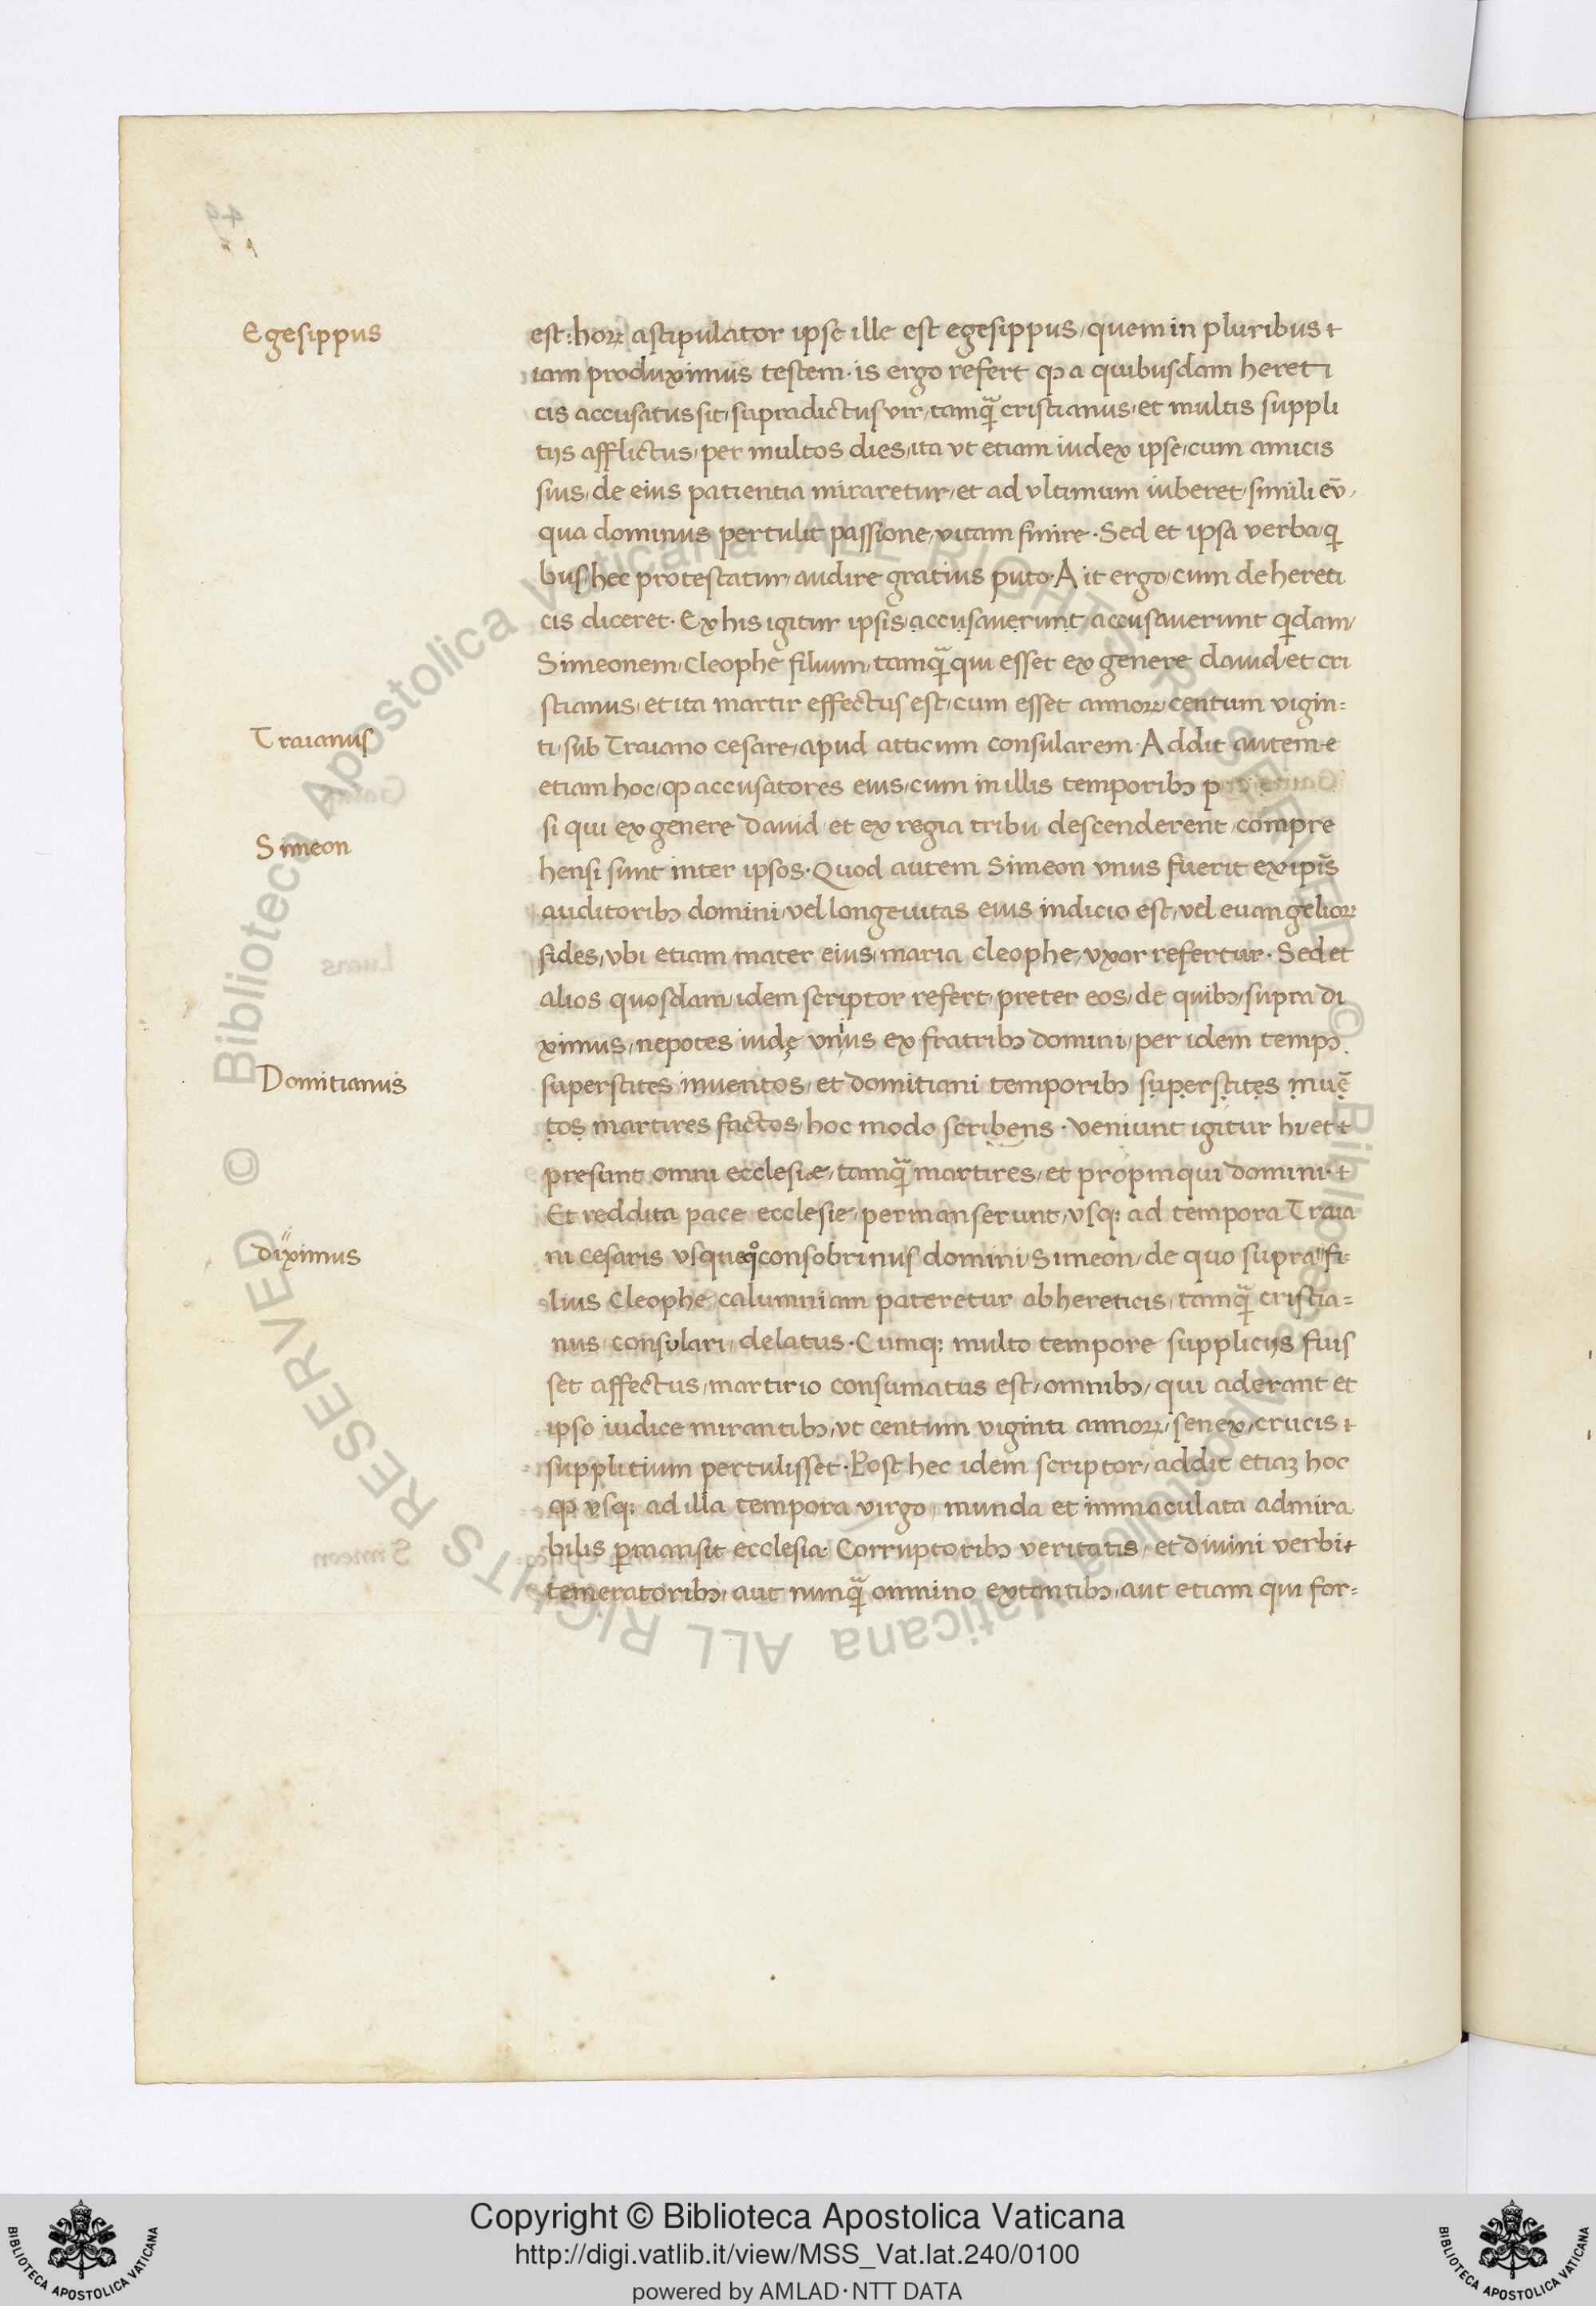 Egesippus
est: hoꝝ astipulator ipse ille est egesippus, quem in pluribus t
iam produximus testem. is ergo refert ꝙ a quibusdam hereti
cis accusatus sit, supradictus vir, tamꝗ̃ cristianus, et multis suppli
tijs afflictus, per multos dies, ita vt etiam iudex ipse, cum amicis
suis, de eius patientia miraretur, et ad vltimum iuberet, simili eū,
qua dominus pertulit passione, vitam finire. Sed et ipsa verba, qi
bus hec protestatur, audire gratius puto. Ait ergo, cum de hereti
cis diceret. Ex his igitur ipsis, accusauerunt accusauerunt qidam,
Simeonem, Cleophe filium, tamꝗ̃ qui esset ex genere dauid, et cri
stianus, et ita martir effectus est, cum esset annoꝝ, centum vigin=
Traianus
ti, sub Traiano cesare, apud atticum consularem. Addit autem e
etiam hoc, ꝙ accusatores eius, cum in illis temporibꝰ p
si qui ex genere dauid, et ex regia tribu descenderent, compre
Simeon
hensi sunt inter ipsos. Quod autem Simeon vnus fuerit ex ipīs
auditoribꝰ domini, vel longeuitas eius indicio est, vel euangelioꝝ
fides, vbi etiam mater eius, maria Cleophe, vxor refertur. Sed et
alios quosdam, idem scriptor refert, preter eos, de quibꝰ, supra di
ximus, nepotes iudę vnius ex fratribꝰ domini, per idem tempꝰ
Domitianus
superstites inuentos, et domitiani temporibꝰ superstites inuē
tos martires factos, hoc modo scribens. veniunt igitur hi, et t
presunt omni ecclesiæ, tamꝗ̃ martires, et propinqui domini. t
Et reddita pace ecclesie, permanserunt, vsqꝫ ad tempora Traia
diximus
ni cesaris vsquequo consobrinus domini, Simeon, de quo supra" fi-
lius Cleophe, calumniam pateretur ab hereticis, tamꝗ̃ cristia=
nus, consulari, delatus. Cumqꝫ multo tempore supplicijs fuis
set affectus, martirio consumatus est, omnibꝰ, qui aderant et
ipso iudice mirantibꝰ, vt centum viginti annoꝝ, senex, crucis t
supplitium pertulisset. Post hec idem scriptor, addit etiaꝫ hoc
ꝙ vsqꝫ ad illa tempora virgo, munda et immaculata admira
bilis ꝑmansit ecclesia. Corruptoribꝰ veritatis, et diuini verbi t
temeratoribꝰ, aut nunꝗ̃ omnino extantibꝰ, aut etiam qui for=
Copyright © Biblioteca Apostolica Vaticana
http://digi.vatlib.it/view/MSS_Vat.lat.240/0100
powered by AMLAD·NTT DATA
© Biblioteca Apostolica Vaticana ALL RIGHTS RESERVED
© Biblioteca Apostolica Vaticana ALL RIGHTS RESERVED
BIBLIOTECA APOSTOLICA VATICANA
BIBLIOTECA APOSTOLICA VATICANA